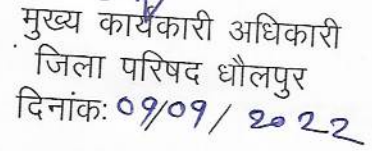 मुख्य कार्यकारी अधिकारी
जिला परिषद धौलपुर
दिनांक: 09/09/2022